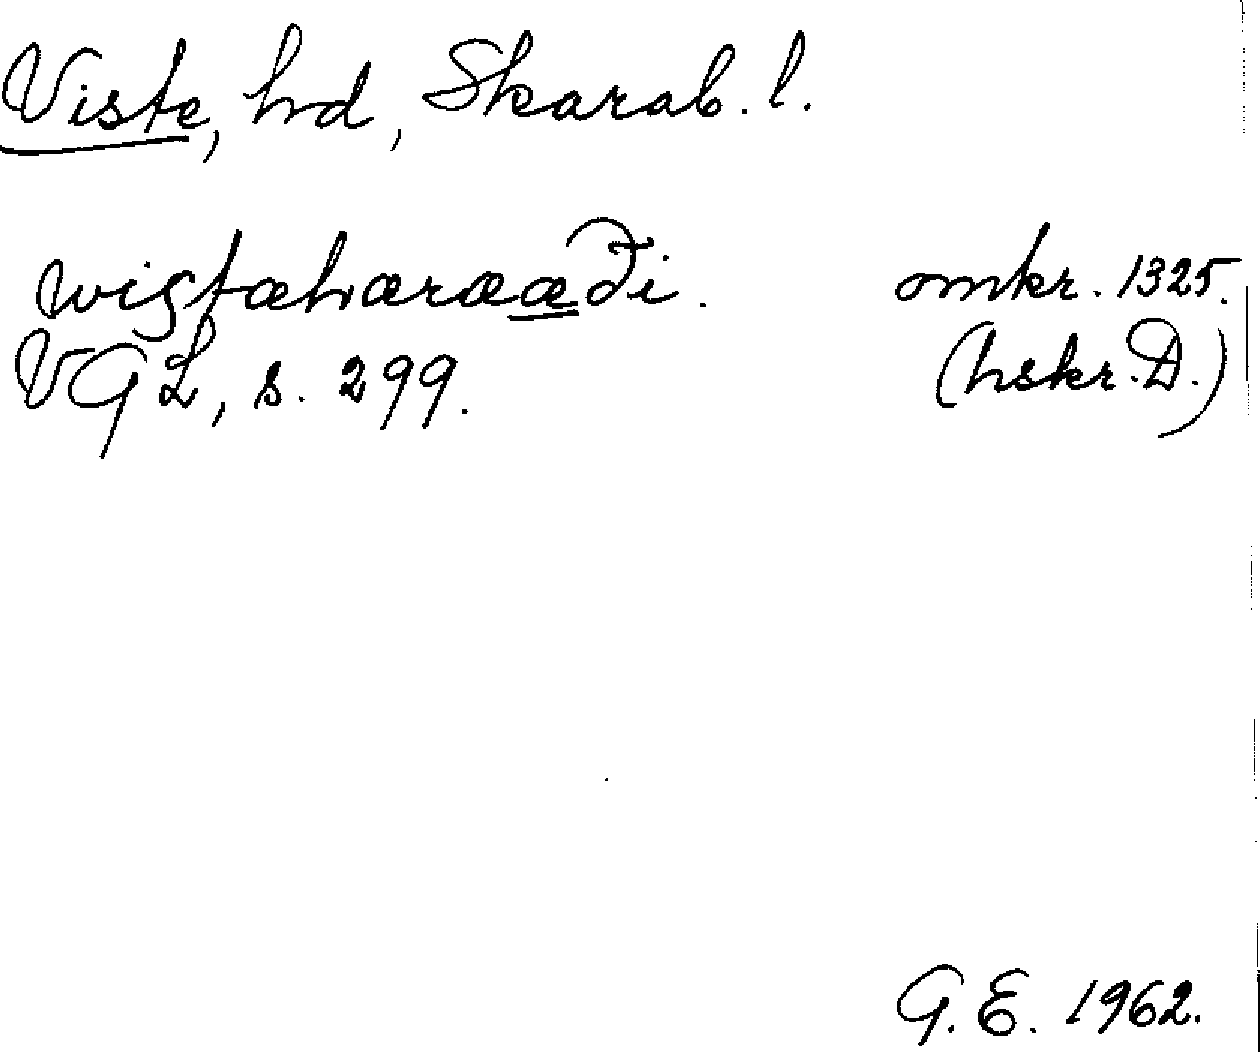 Viste, hd, Skarab. l.
wistæhærææði. omkr. 1325.
VGL, s. 299. (hskr. D.)
G. E. 1962.